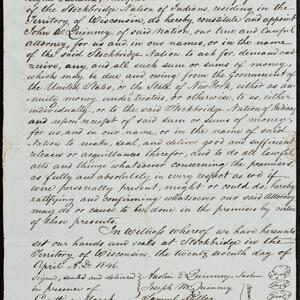 of the Stockbridge Nation of Indians, residing in the
Territory of Wisconsin, do hereby constitute and appoint
John W. Quinney, of said Nation, our true and lawful
Attorney, for us and in our names, or in the name,
of the said Stockbridge Nation to ask for demand and re-
ceive, any, and all such sum or sums of money,
which may be due and owing from the Government of
the United States, or the State of New York, either as an-
nuity money, under treaties, or otherwise, to us, either
individually, or to the said Stockbridge Nation of Indians,
and upon receipt of said sum or sums of money,
for us, and in our name, or in the name of said
Nation to make, seal, and deliver good and sufficient
release or acquittances therefor, and to do all lawful
acts and things whatsoever concerning the premises,
as fully and absolutely in every respect as we if
were personally present, might or could do, hereby
ratifying and confirming whatsoever our said Attorney
may do or cause to be done in the premises by virtue
of these presents.
In Witness whereof we have hereunto
set our hands and seals at Stockbridge in the
Territory of Wisconsin, the twenty seventh day of
April A.D. 1846.
Signed, sealed and delivered Austin E. Quinney,
in presence of Joseph M. Quinney
Samuel